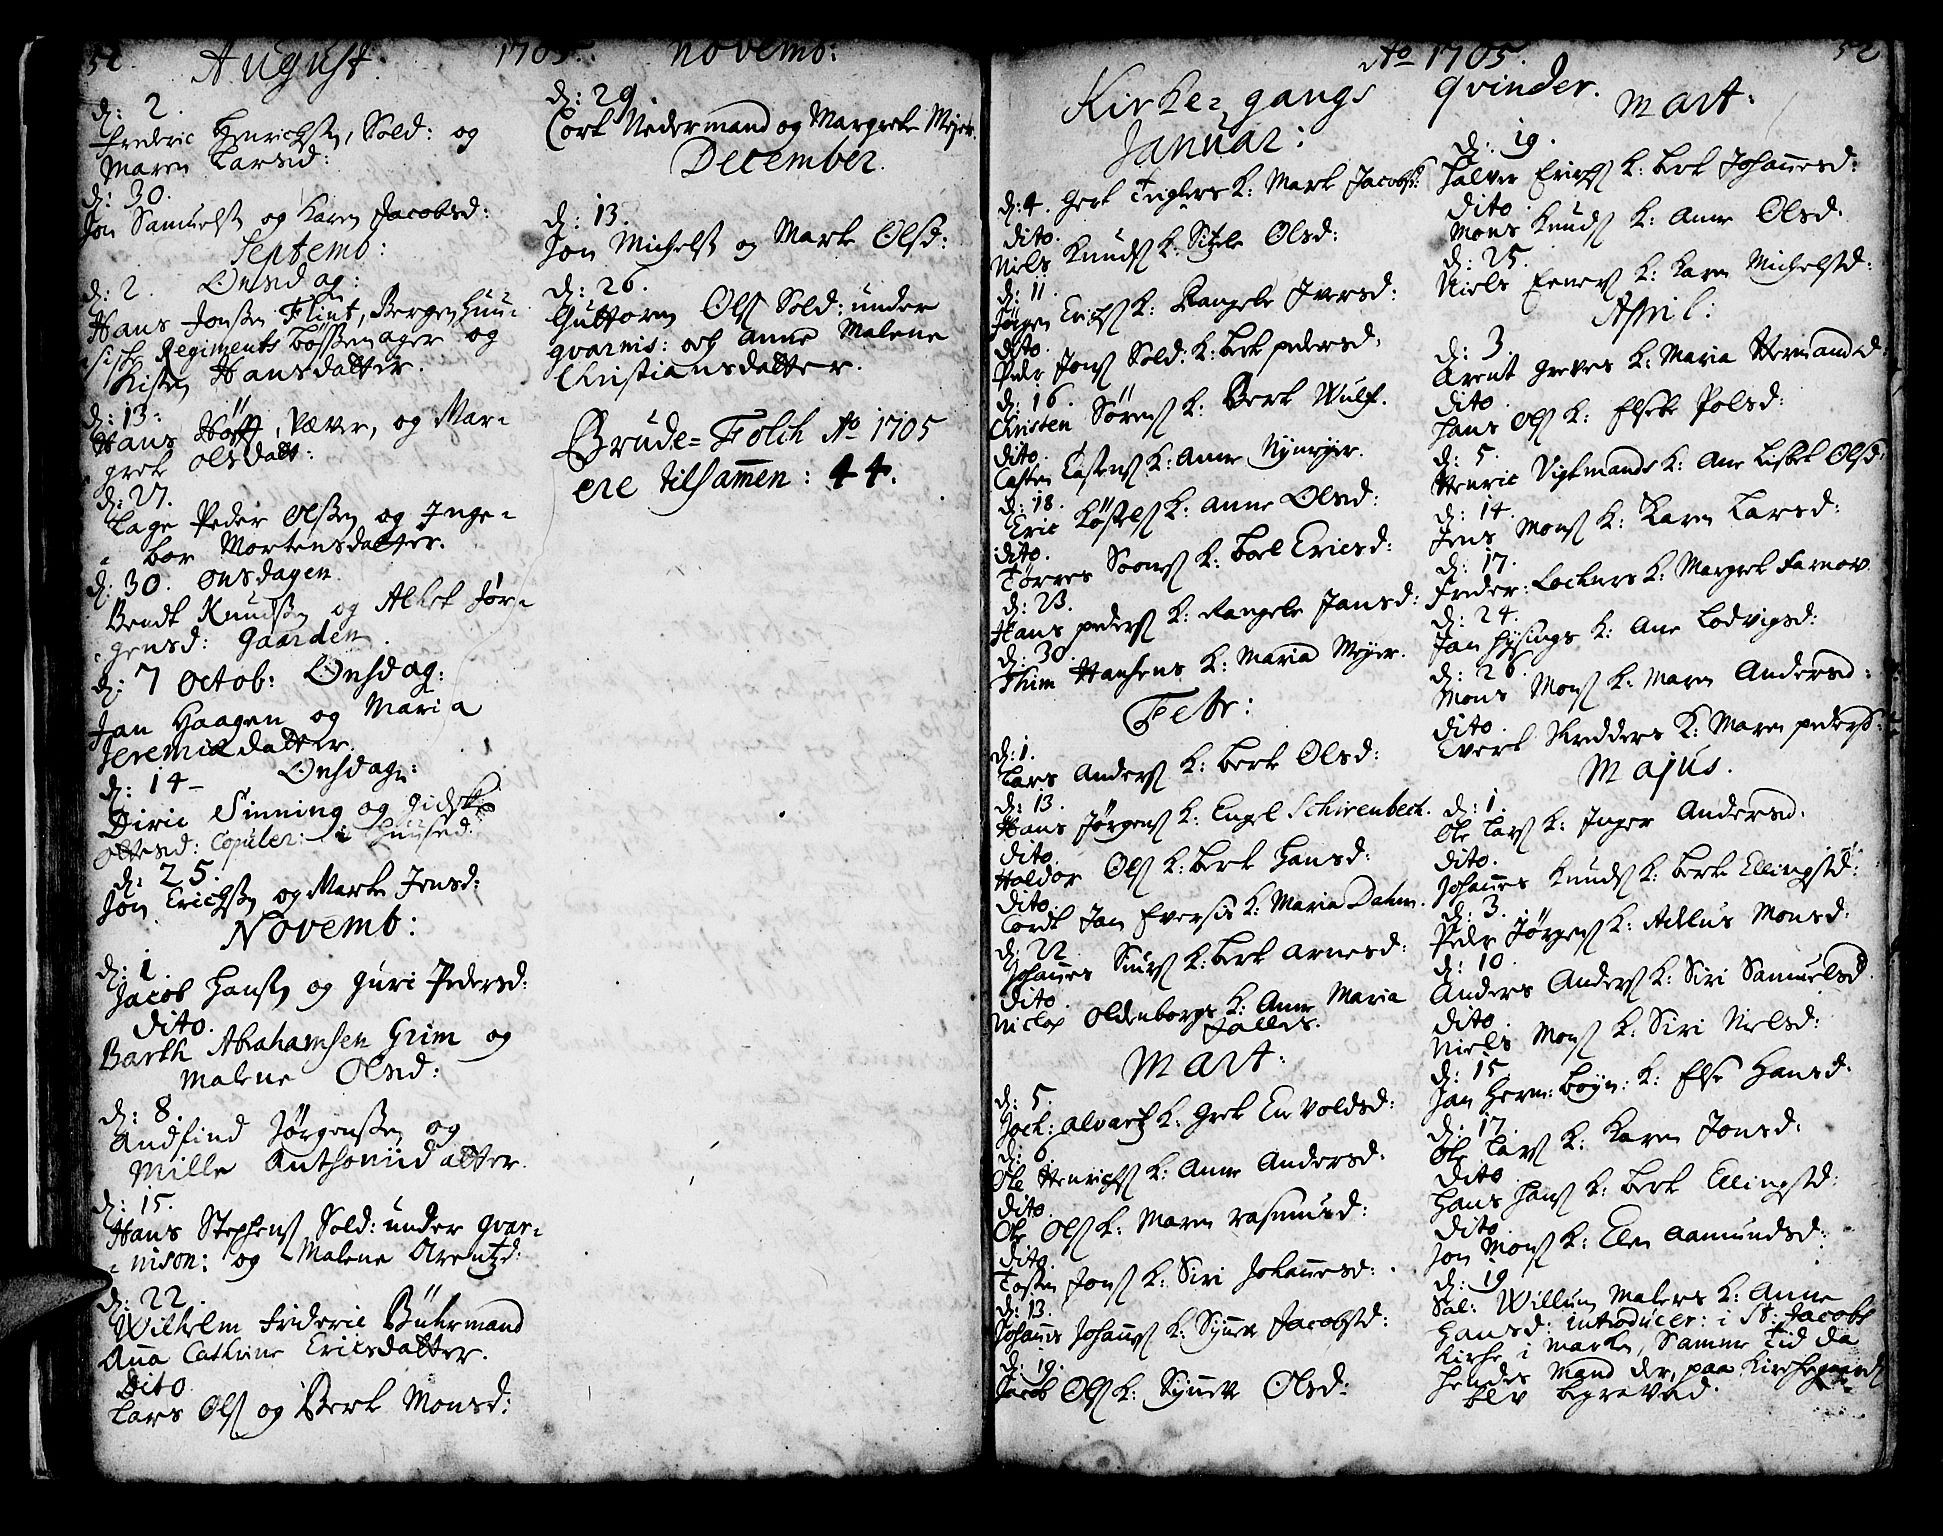 52 August. 1705. Novemb:
d: 2.
Frederic Henrichsen, Sold: og
Maren Larsd:
d: 30.
Jon Samuelsen og Karen Jacobsd:
Septemb:
d: 2. Onsdag:
Hans Jonsen Flint, Bergenhuu-
siske Regiments bøssemager og
Kisten Hansdatter.
d: 13.
Hans Høff, Væver, og Mar-
gret olsdatt:
d: 27.
Lage Peder olsen og Inge-
bor Mortensdatter.
d: 30. onsdagen.
Bendt Knudsen og Alhet Jør-
gensd: gaarden.
d: 7 octob: Onsdag:
Jan Haagen og Maria
Jeremiædatter.
d: 14 - Onsdag:
Diric Sinning og Gidske
Ottesd: Copuler: i Huused.
d: 25.
Jon Erichsen og Marte Jensd:
Novemb:
d: 1.
Jacob Hansen og Guri Pedersd:
dito.
Barth Abrahamsen Grim og
Malene Olsd:
d: 8.
Andfind Jørgensen og
Mille Anthoniidatter.
d: 15.
Hans Stephens Sold: under gvar-
nison: og Malene Arentzd:
d: 22.
Wilhelm Frideric Bührmand
Anna Cathrine Ericsdatter.
Dito
Lars Ols og Berte Monsd:
d: 29.
Cort Nedermand og Margrete Meyer.
December.
d: 13.
Jon Michelsen og Marte Olsd:
d: 26.
Guttorm Ols Sold: under
gvarnis: och Anne Malene
Christiansdatter.
Brude-Folch Ao 1705
ere tilsammen: 44.
Ao 1705. 52
Kirke-gangs qvinder.
Januar:
d: 4. Gert Teglers K: Marte Jacobsd:
dito.
Niels Knuds K: Sitzele Olsd:
d: 11.
Jørgen Erichs K: Rangele Iversd:
dito.
Peder Jons Sold: K: Berte pedersd.
d: 16.
Christen Sørens K: Berte Wulf.
dito.
Casten Castens K: Anne Nymeyer.
d: 18.
Eric Køstels K: Anne Olsd:
dito.
Tørres Soons K: Boel Ericsd:
d: 23.
Hans peders K: Rangele Jansd:
d: 30.
Thim Hansens K: Maria Meyer.
Febr:
d: 1.
Lars Anders K: Berte Olsd:
d: 13.
Hans Jørgens K: Engel Schirenbech.
dito.
Haldor Ols K: Berte Hansd:
dito.
Cordt Jan Eversis K: Maria Dahm.
d: 22
Johannes Siurs K: Berte Arnesd:
dito.
Niclas Oldenborgs K: Anne Maria
Falles.
Mart:
d: 5.
Joch: Alvartz K: Grete Envoldsd:
d: 6.
Ole Henrichs K: Anne Andersd:
dito.
Ole Ols K: Maren rasmusd:
dito.
Tosten Jons K: Siri Johannesd:
d: 13.
Johannes Johannes K: Synnev Jacobsd:
d: 19.
Jacob Ols K: Synnev Olsd:
Mart:
d: 19.
Halvor Erichs K: Berte Johannesd:
dito
Mons Knuds K: Anne Olsd:
d: 25.
Niels Eeners K: Karen Michelsd:
April:
d: 3.
Arent Greves K: Maria Hermandsd.
dito
Hans Ols K: Elsebe Polsd:
d: 5.
Henric Vigtmands K: Ane Lisbet Olsd:
d: 14.
Jens Mons K: Karen Larsd:
d: 17.
Freder: Lochners K: Margrete Farnov.
d: 24.
Jan Hysings K: Ane Lodvigsd:
d: 26.
Mons Mons K: Maren Andersd:
dito.
Evert Skredders K: Maren pedersd:
Majus.
d: 1.
Ole Lars K: Inger Andersd.
dito.
Johannes Knuds K: Berte Ellingsd:
d: 3.
Peder Jørgens K: Adlus Monsd:
d: 10.
Anders Anders K: Siri Samuelsd.
dito.
Niels Mons K: Siri Nielsd:
d: 15.
Jan Herm: Boyn: K: Else Hansd.
d: 17.
Ole Lars K: Karen Jonsd:
dito.
Hans Hans K: Berte Ellingsd:
dito.
Jon Mons K: Elen Aamundsd:
d: 19
Sal: Willum Malers K: Anne
Hansd: introducer: i St: Jacobs
Kirche i marken, Samme Tid da
hendes Mand der, paa Kirchegaard
blev begraved.